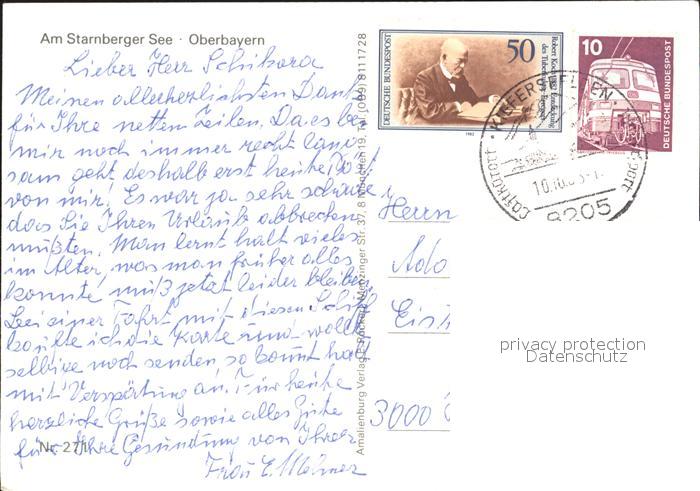 Am Starnberger See · Oberbayern
Lieber Herr Schikora
Meinen allerherzlichsten Dank
für Ihre netten Zeilen. Da es bei
mir noch immer recht lang
sam geht deshalb erst heute Post
von mir! Es war ja sehr schade
das Sie Ihren Urlaub abbrechen
mußten. Man lernt halt vieles
im Alter, was man früher alles
konnte muß jetzt leider bleiben.
Bei einer Fahrt mit diesen Schiff
kaufte ich die Karte und wollte
selbige noch senden so kommt halt
mit Verspätung an. Für heute
herzliche Grüße sowie alles Gute
für Ihre Gesundung von Ihrer
Frau E.
Nr. 27/1
Amalienburg Verlag Metzinger Str. 37, 8 München 19, Tel. (089) 8111728
DEUTSCHE BUNDESPOST
50
Robert Koch 1982 Entdeckung
des Tuberkulose-Erregers
1982
10
DEUTSCHE BUNDESPOST
KIEFERSFELDEN
10.10.83
8205
Herrn
Ado
3000
privacy protection
Datenschutz